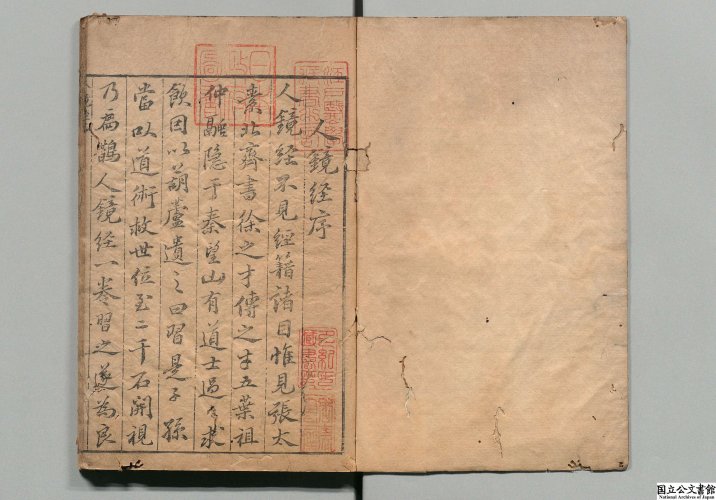 人鏡经序
人鏡经不見經籍諸目惟見張太
素北齊書徐之才傳之才五葉祖
仲融隐于秦望山有道士過之求
飲因以葫蘆遺之曰習是子孫
當以道術救世位至二千石開視
乃扁鵲人鏡经一卷習之遂為良
国立公文書館
National Archives of Japan